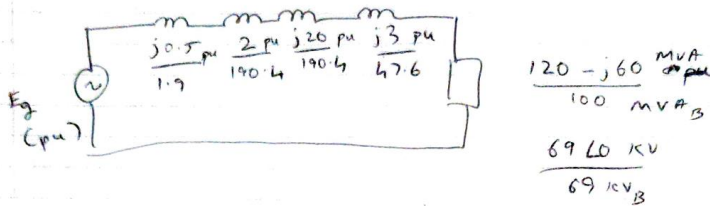 j0.5 pu
1.9
2 pu
190.4
j20 pu
190.4
j3 pu
47.6
Eg
(pu)
120 - j60 MVA
100 MVA B
69 ∠0 KV
69 KV B